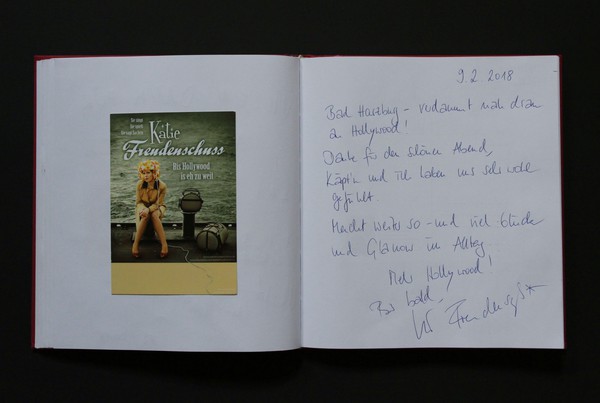 Sie singt
Sie spielt
Katie
Freudenschuss
Bis Hollywood
is eh zu weit
9.2.2018
Bad Harzburg – verdammt nah dran
an Hollywood!
Danke für den schönen Abend,
Käpt'n und ich haben uns sehr wohl
gefühlt.
Macht weiter so – und viel Glück
und Glamour im Alltag.
Mehr Hollywood!
Bis bald,
Freudenschuss